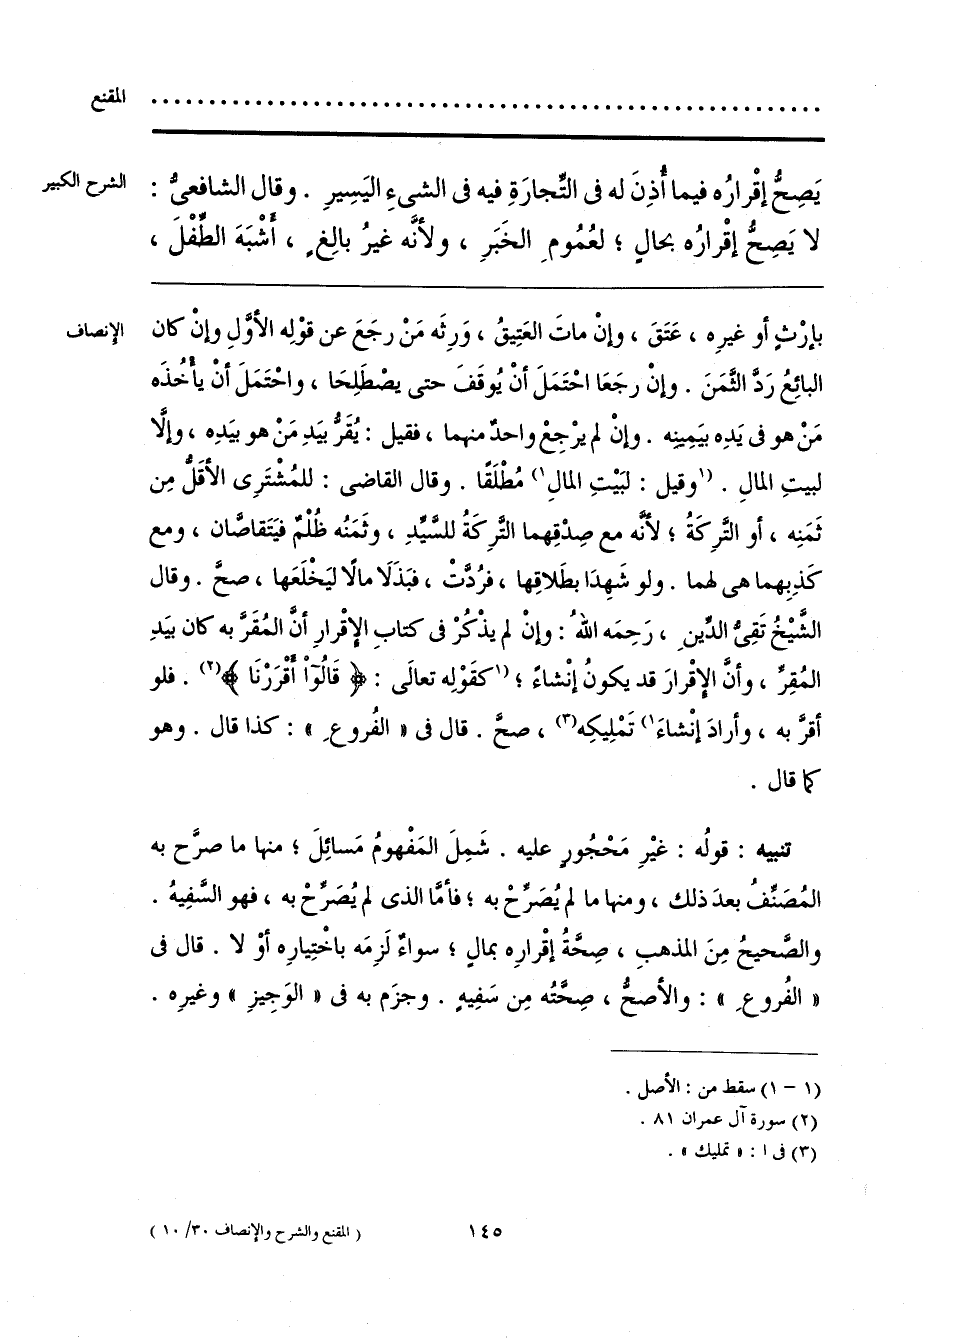 المقنع ................................................
الشرح الكبير
يَصِحُّ إقْرارُه فيما أُذِنَ له فى التِّجارَةِ فيه فى الشىءِ اليَسِيرِ . وقال الشافعىُّ :
لا يَصِحُّ إقْرارُه بحالٍ ؛ لعُمُومِ الخَبَرِ ، ولأنَّه غيرُ بالِغٍ ، أشْبَهَ الطِّفْلَ ،
الإنصاف
بإرْثٍ أو غيرِه ، عَتَقَ ، وإنْ ماتَ العَتِيقُ ، وَرِثَه مَنْ رجَعَ عن قوْلِه الأوَّلِ وإنْ كان
البائِعُ رَدَّ الثَّمَنَ . وإنْ رجَعَا احْتَمَلَ أنْ يُوقَفَ حتى يصْطَلِحَا ، واحْتَمَلَ أنْ يأْخُذَه
مَنْ هو فى يَدِه بيَمِينِه . وإنْ لم يرْجِعْ واحدٌ منهما ، فقيل : يُقَرُّ بيَدِ مَنْ هو بيَدِه ، وإلَّا
لبيتِ المالِ . (١وقيل : لبَيْتِ المالِ١) مُطْلَقًا . وقال القاضى : للمُشْتَرِى الأقَلُّ مِن
ثَمَنِه ، أو التَّرِكَةُ ؛ لأنَّه مع صِدْقِهما التَّرِكَةُ للسَّيِّدِ ، وثَمَنُه ظُلْمٌ فيَتَقاصَّان ، ومع
كَذِبِهما هى لهما . ولو شَهِدَا بطَلاقِها ، فرُدَّتْ ، فبَذَلَا مالًا ليَخْلَعَها ، صحَّ . وقال
الشَّيْخُ تَقِىُّ الدِّينِ ، رَحِمَه اللهُ : وإنْ لم يذْكُرْ فى كتابِ الإقْرارِ أنَّ المُقَرَّ به كان بيَدِ
المُقِرِّ ، وأنَّ الإقْرارَ قد يكونُ إنْشاءً ؛ (١كقَوْلِه تعالَى : ﴿ قَالُوٓاْ أَقْرَرْنَا ﴾(٢) . فلو
أقرَّ به ، وأرادَ إنْشاءَ١) تَمْلِيكِه(٣) ، صحَّ . قال فى « الفُروعِ » : كذا قال . وهو
كما قال .
تنبيه : قولُه : غيْرِ مَحْجُورٍ عليه . شَمِلَ المَفْهومُ مَسائِلَ ؛ منها ما صرَّح به
المُصَنِّفُ بعدَ ذلك ، ومنها ما لم يُصَرِّحْ به ؛ فأمَّا الذى لم يُصَرِّحْ به ، فهو السَّفِيهُ .
والصَّحيحُ مِنَ المذهبِ ، صِحَّةُ إقْرارِه بمالٍ ؛ سواءٌ لَزِمَه باخْتِيارِه أوْ لا . قال فى
« الفُروعِ » : والأصحُّ ، صِحَّتُه مِن سَفِيهٍ . وجزَم به فى « الوَجيزِ » وغيرِه .
(١ - ١) سقط من : الأصل .
(٢) سورة آل عمران ٨١ .
(٣) فى ا : « تمليك » .
١٤٥
( المقنع والشرح والإنصاف ٣٠/ ١٠ )